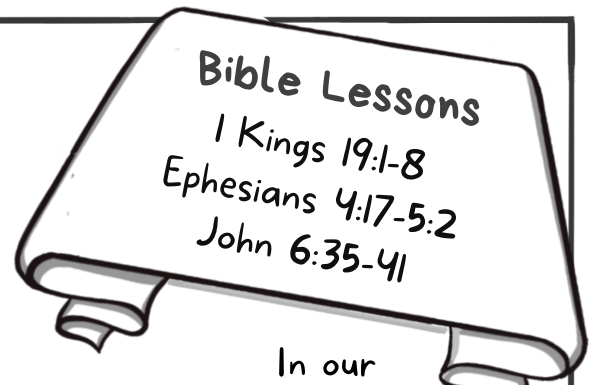 Bible Lessons
1 Kings 19:1-8
Ephesians 4:17-5:2
John 6:35-41
In our